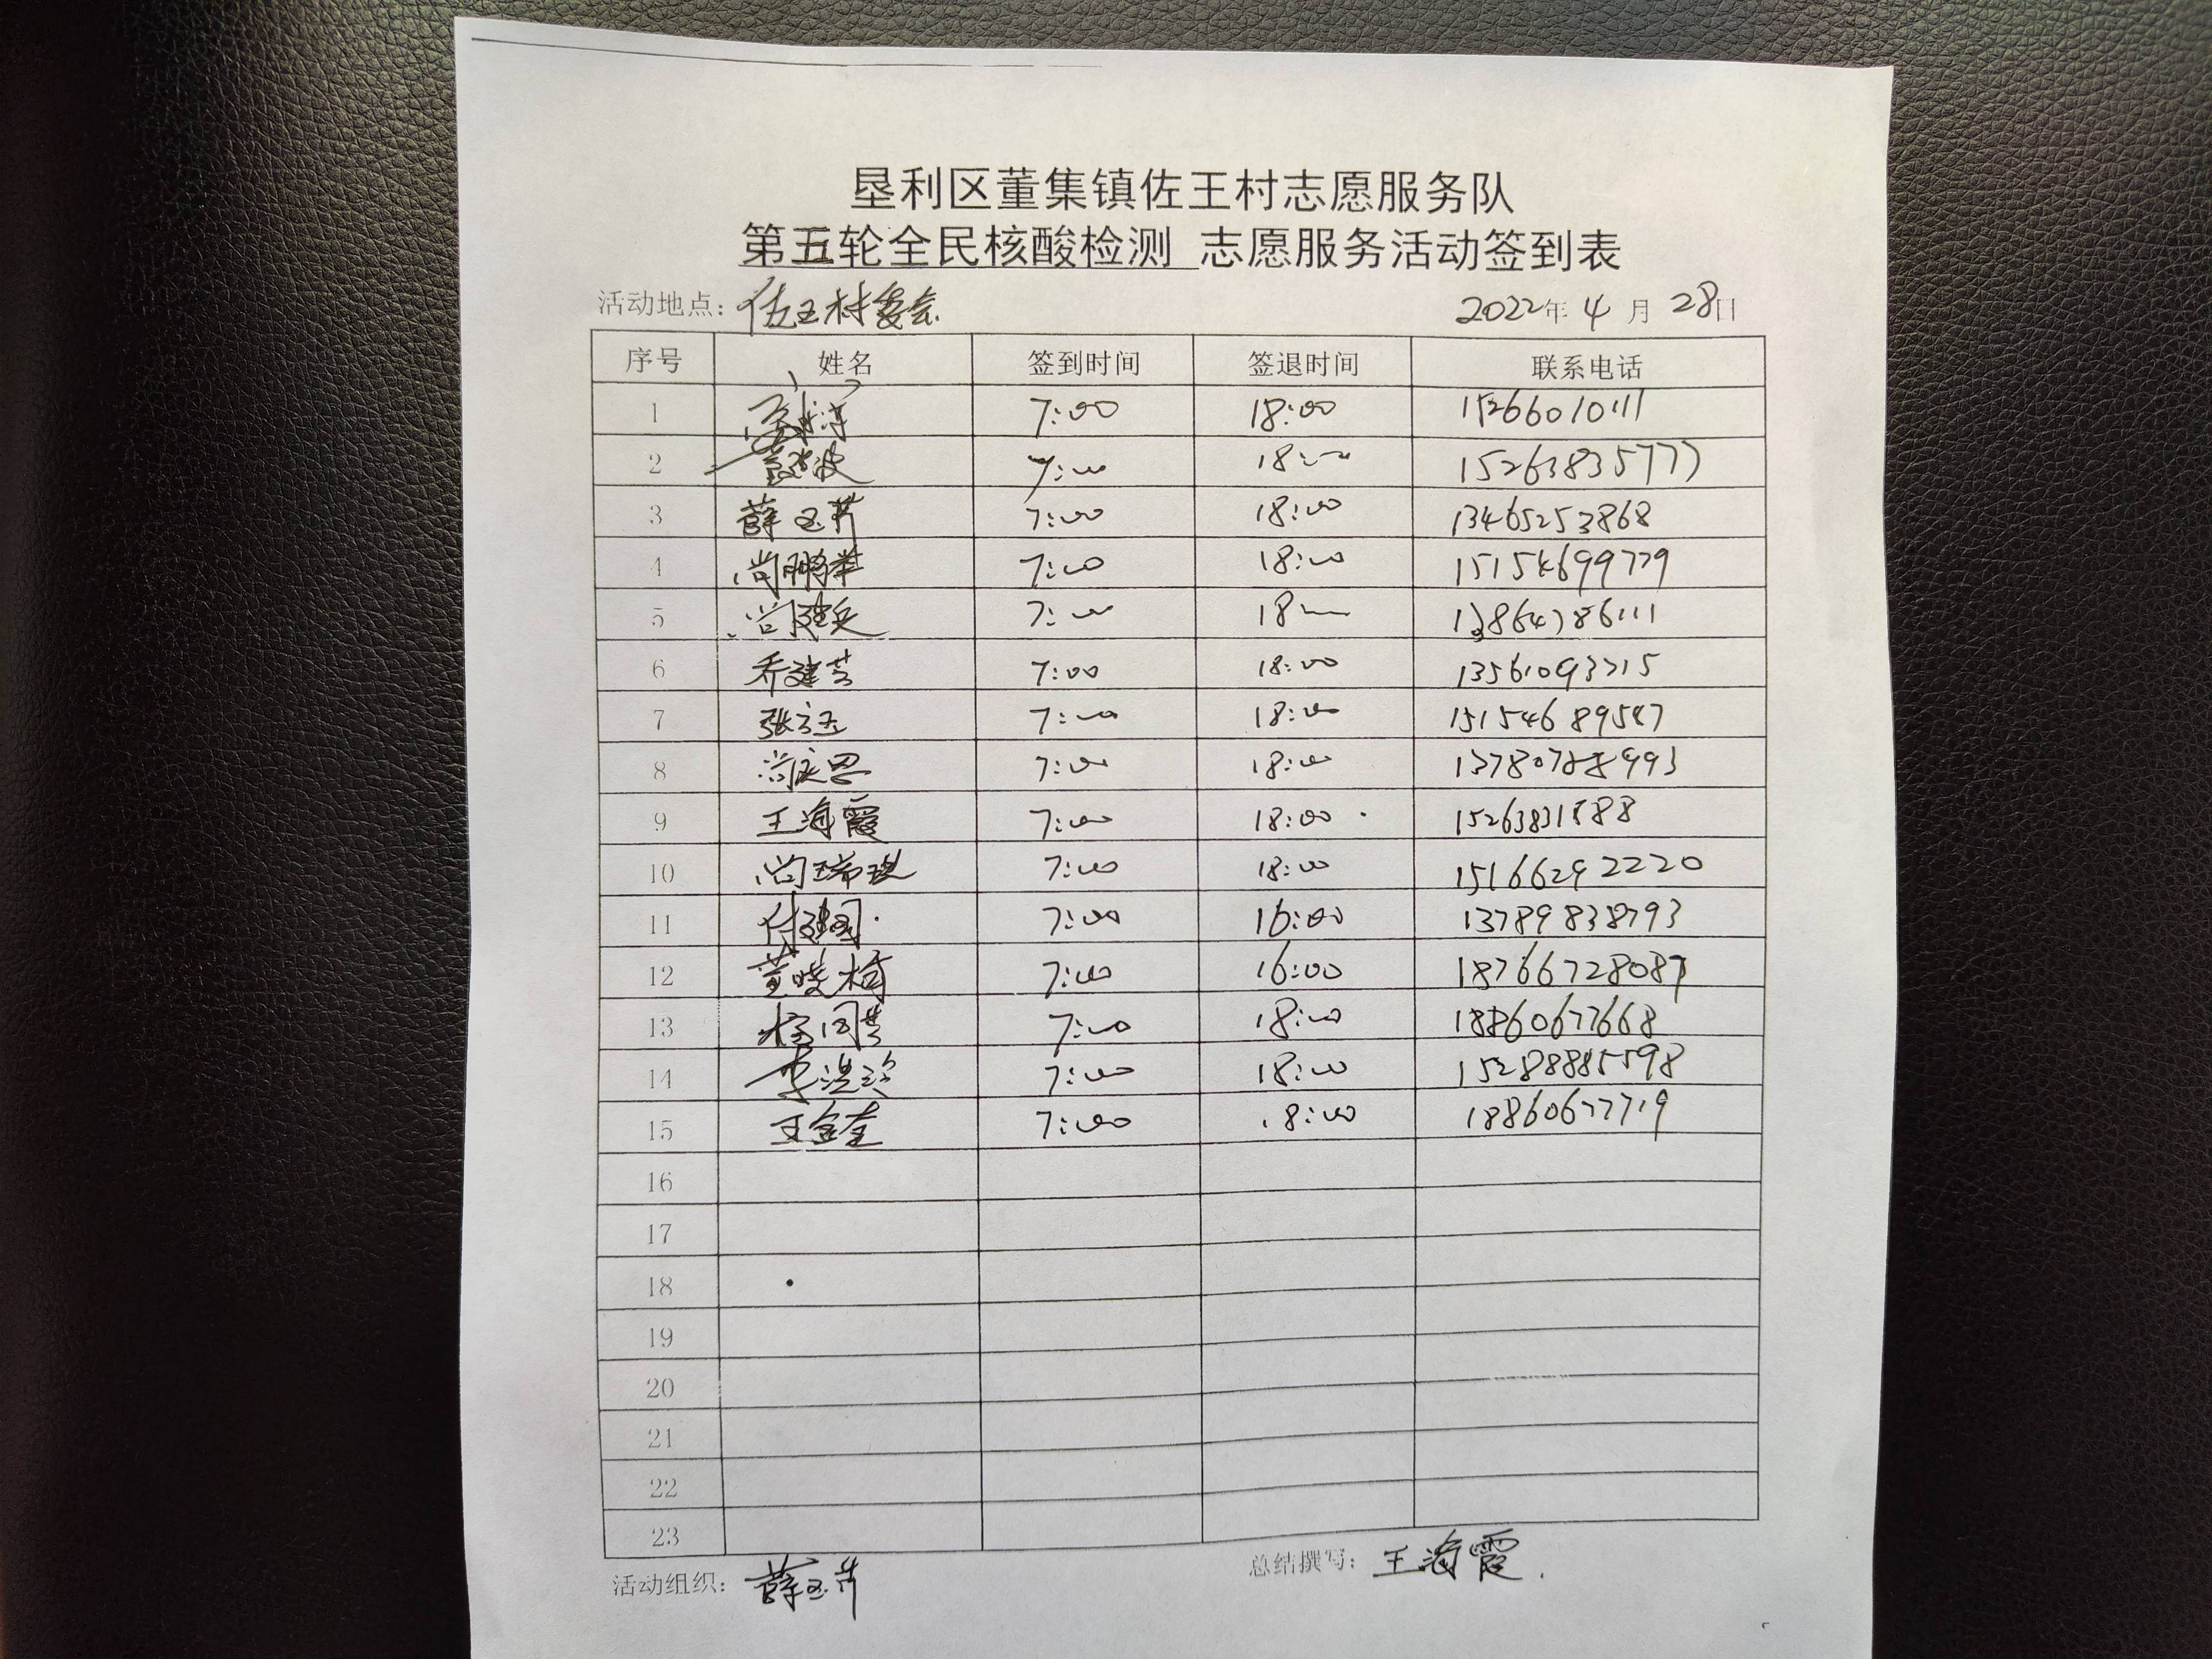 垦利区董集镇佐王村志愿服务队
第五轮全民核酸检测 志愿服务活动签到表
活动地点：佐王村委会 2022年 4 月 28日
序号 姓名 签到时间 签退时间 联系电话
1 7:00 18:00 15266010111
2 7:00 18:00 15263835777
3 薛玉芹 7:00 18:00 13465253868
4 尚鹏举 7:00 18:00 15154699779
5 尚建兵 7:00 18:00 13864786111
6 乔建芸 7:00 18:00 13561093715
7 张 7:00 18:00 15154689587
8 7:00 18:00
9 王海霞 7:00 18:00 15263831888
10 尚瑞琪 7:00 18:00 15166292220
11 付建国 7:00 16:00 13789838793
12 董晓楠 7:00 16:00
13 杨同芸 7:00 18:00 18860677668
14 李洪珍 7:00 18:00 15288885598
15 王金奎 7:00 18:00 18860677719
16
17
18
19
20
21
22
23
活动组织：薛玉芹 总结撰写：王海霞.